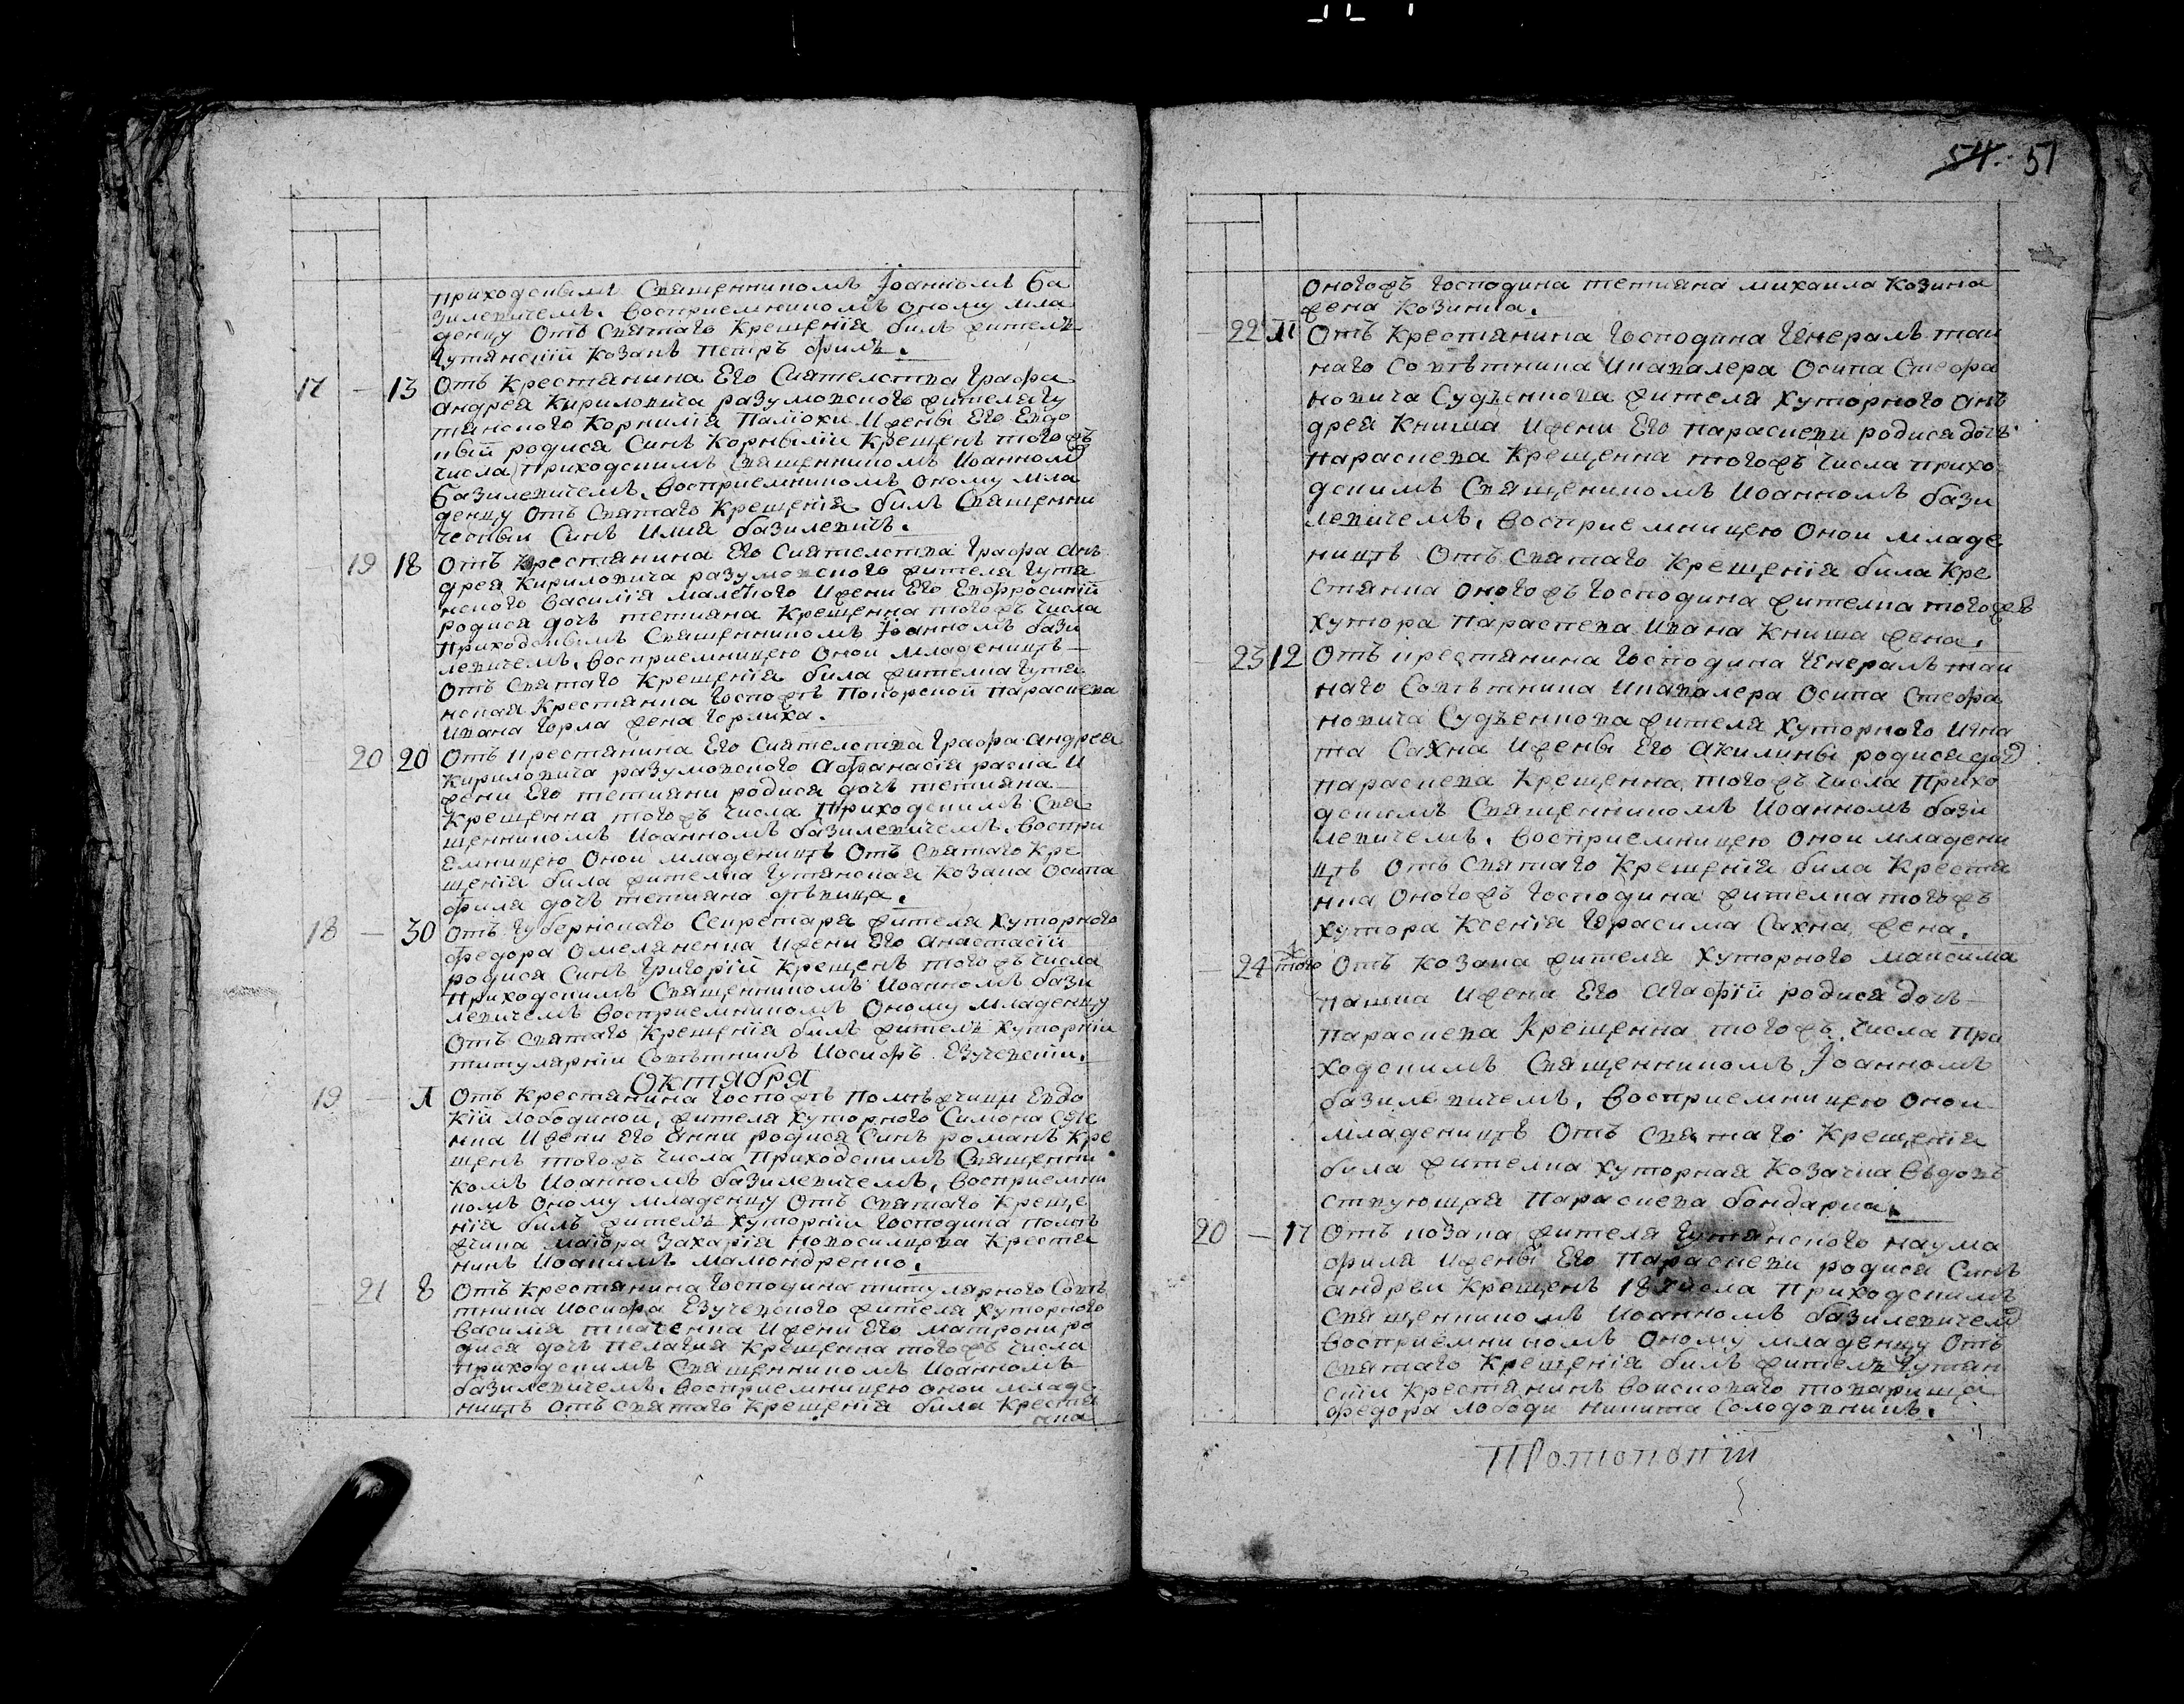 приходскымъ Священникомъ Іоанномъ Ба
зилевичемъ. Восприемникомъ Оному мла
денцу Отъ Святаго Крещенія билъ жителъ
Гутянскій Козакъ Петръ Филъ.
17 — 13 Отъ Крестянина Его Сиятелства Графа
андрея Кириловича разумовского жителя Гу
тянского Корнилія Палюхи Ижены Его Евдо
кый родися Синъ Корнылий Крещенъ тогожъ
числа приходскимъ Священникомъ Иоанномъ
Базилевичемъ. Восприемникомъ Оному мла
денцу Отъ Святаго Крещенія билъ Священни
ческый Синъ Илия базилевичъ.
19 18 Отъ Крестянина Его Сиятелства Графа Ан
дрея Кириловича разумовского жителя Гутя
нского василія малекого Ижени Его Евфросиній
родися дочъ тетияна Крещенна тогожъ числа
приходскымъ Священникомъ Іоанномъ бази
левичемъ. восприемницею Оной младеницѣ
Отъ Святаго Крещенія била жителка Гутя
нская Крестянка Госпожъ Покорской параскева
Ивана Горла жена Горлиха.
20 20 Отъ крестянина Его Сиятелства Графа андрея
Кириловича разумовского Афанасія расиа И
жени Его тетияни родися дочъ тетияна
Крещенна тогожъ числа Приходскимъ Свя
щенникомъ Иоанномъ базилевичемъ. воспри
Емницею Оной младеницѣ Отъ Святаго Кре
щенія била жителка Гутянская Козака Осипа
филя дочъ тетияна дѣвица.
18 — 30 Отъ Губернского Секретаря жителя Хуторного
федора Омеляненка Ижени Его Анастасій
родися Синъ Григорій Крещенъ тогожъ числа
Приходскимъ Священникомъ Иоанномъ бази
левичемъ Восприемникомъ Оному младенцу
Отъ Святаго Крещенія билъ жителъ хуторній
титулярній Совѣтникъ Иосифъ Езучевский.
Октября
19 — Л Отъ Крестянина Госпожъ Помѣжчици Евдо
кій Лободиной, жителя хуторного Симона
нка Ижени Его Анни родися Синъ романъ Кре
щенъ тогожъ числа Приходскимъ Священни
комъ Иоанномъ базилевичемъ, Восприемни
комъ Оному младенцу Отъ Святаго Креще
нія билъ жителъ хуторній Господина помѣ
жчика маіора Захарія Новосилцова Крестя
нинъ Иоакимъ Мамондренко.
21 8 Отъ Крестянина Господина титулярного Совѣ
тника Иосифа Езучевского жителя хуторного
василия ткаченка Ижени Его матрони ро
дися дочъ пелагия Крещенна тогожъ числа
приходскимъ Священникомъ Иоанномъ
базилевичемъ. восприемницею оной младе
ницѣ Отъ Святаго Крещенія била Крестя
нка
54. 51
Оногожъ Господина тетияна михаила Козина
жена Козинка.
22 Л Отъ Крестянина Господина Генералъ тай
наго Совѣтника Икавалера Осипа Стефа
новича Судѣенкова жителя хуторного Ан
дрея Книша Ижени Его параскеви родися дочъ
параскева Крещенна тогожъ числа прихо
дскимъ Священикомъ Иоанномъ бази
левичемъ. Восприемницею Оной младе
ницѣ Отъ Святаго Крещенія била Кре
стянка Оногожъ Господина жителка тогожъ
хутора Параскева Ивана Книша жена.
23 12 Отъ крестянина Господина Генералъ тай
наго Совѣтника Икавалера Осипа Стефа
новича Судѣенкова жителя хуторного Игна
та Сахна Ижены Его Акилины родися доч
параскева Крещенна тогожъ числа Прихо
дскимъ Священникомъ Иоанномъ бази
левичемъ. Восприемницею Оной младени
цѣ Отъ Святаго Крещенія била Крестя
нка Оногожъ Господина жителка тогожъ
хутора Ксенія Герасима Сахна жена.
24 того Отъ Козака жителя Хуторного максима
пашка Ижени Его Агафій родися дочъ
параскева Крещенна тогожъ числа При
ходскимъ Священникомъ Іоанномъ
базилевичемъ, Восприемницею Оной
младеницѣ Отъ Святаго Крещенія
била жителка хуторная Козачка Вѣдов
ствующая Параскева бондарка.
20 — 17 Отъ козака жителя Гутянского наума
филя Ижены Его Параскеви родися Синъ
андрей Крещенъ 18 числа Приходскимъ
Священникомъ Иоанномъ базилевичем
восприемникомъ Оному младенцу Отъ
Святаго Крещенія билъ жителъ Гутян
скій Крестянинъ войскового товарища
федора лободи никита Солодовникъ.
Протопопій